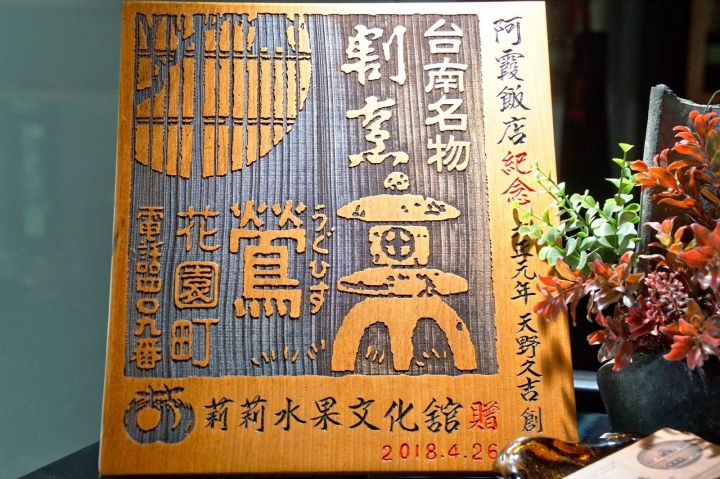 阿霞飯店紀念
大正元年 天野久吉 創
台南名物
割烹
うぐひす
鶯
花園町
電話四〇九番
莉莉水果文化舘 贈
2018.4.26